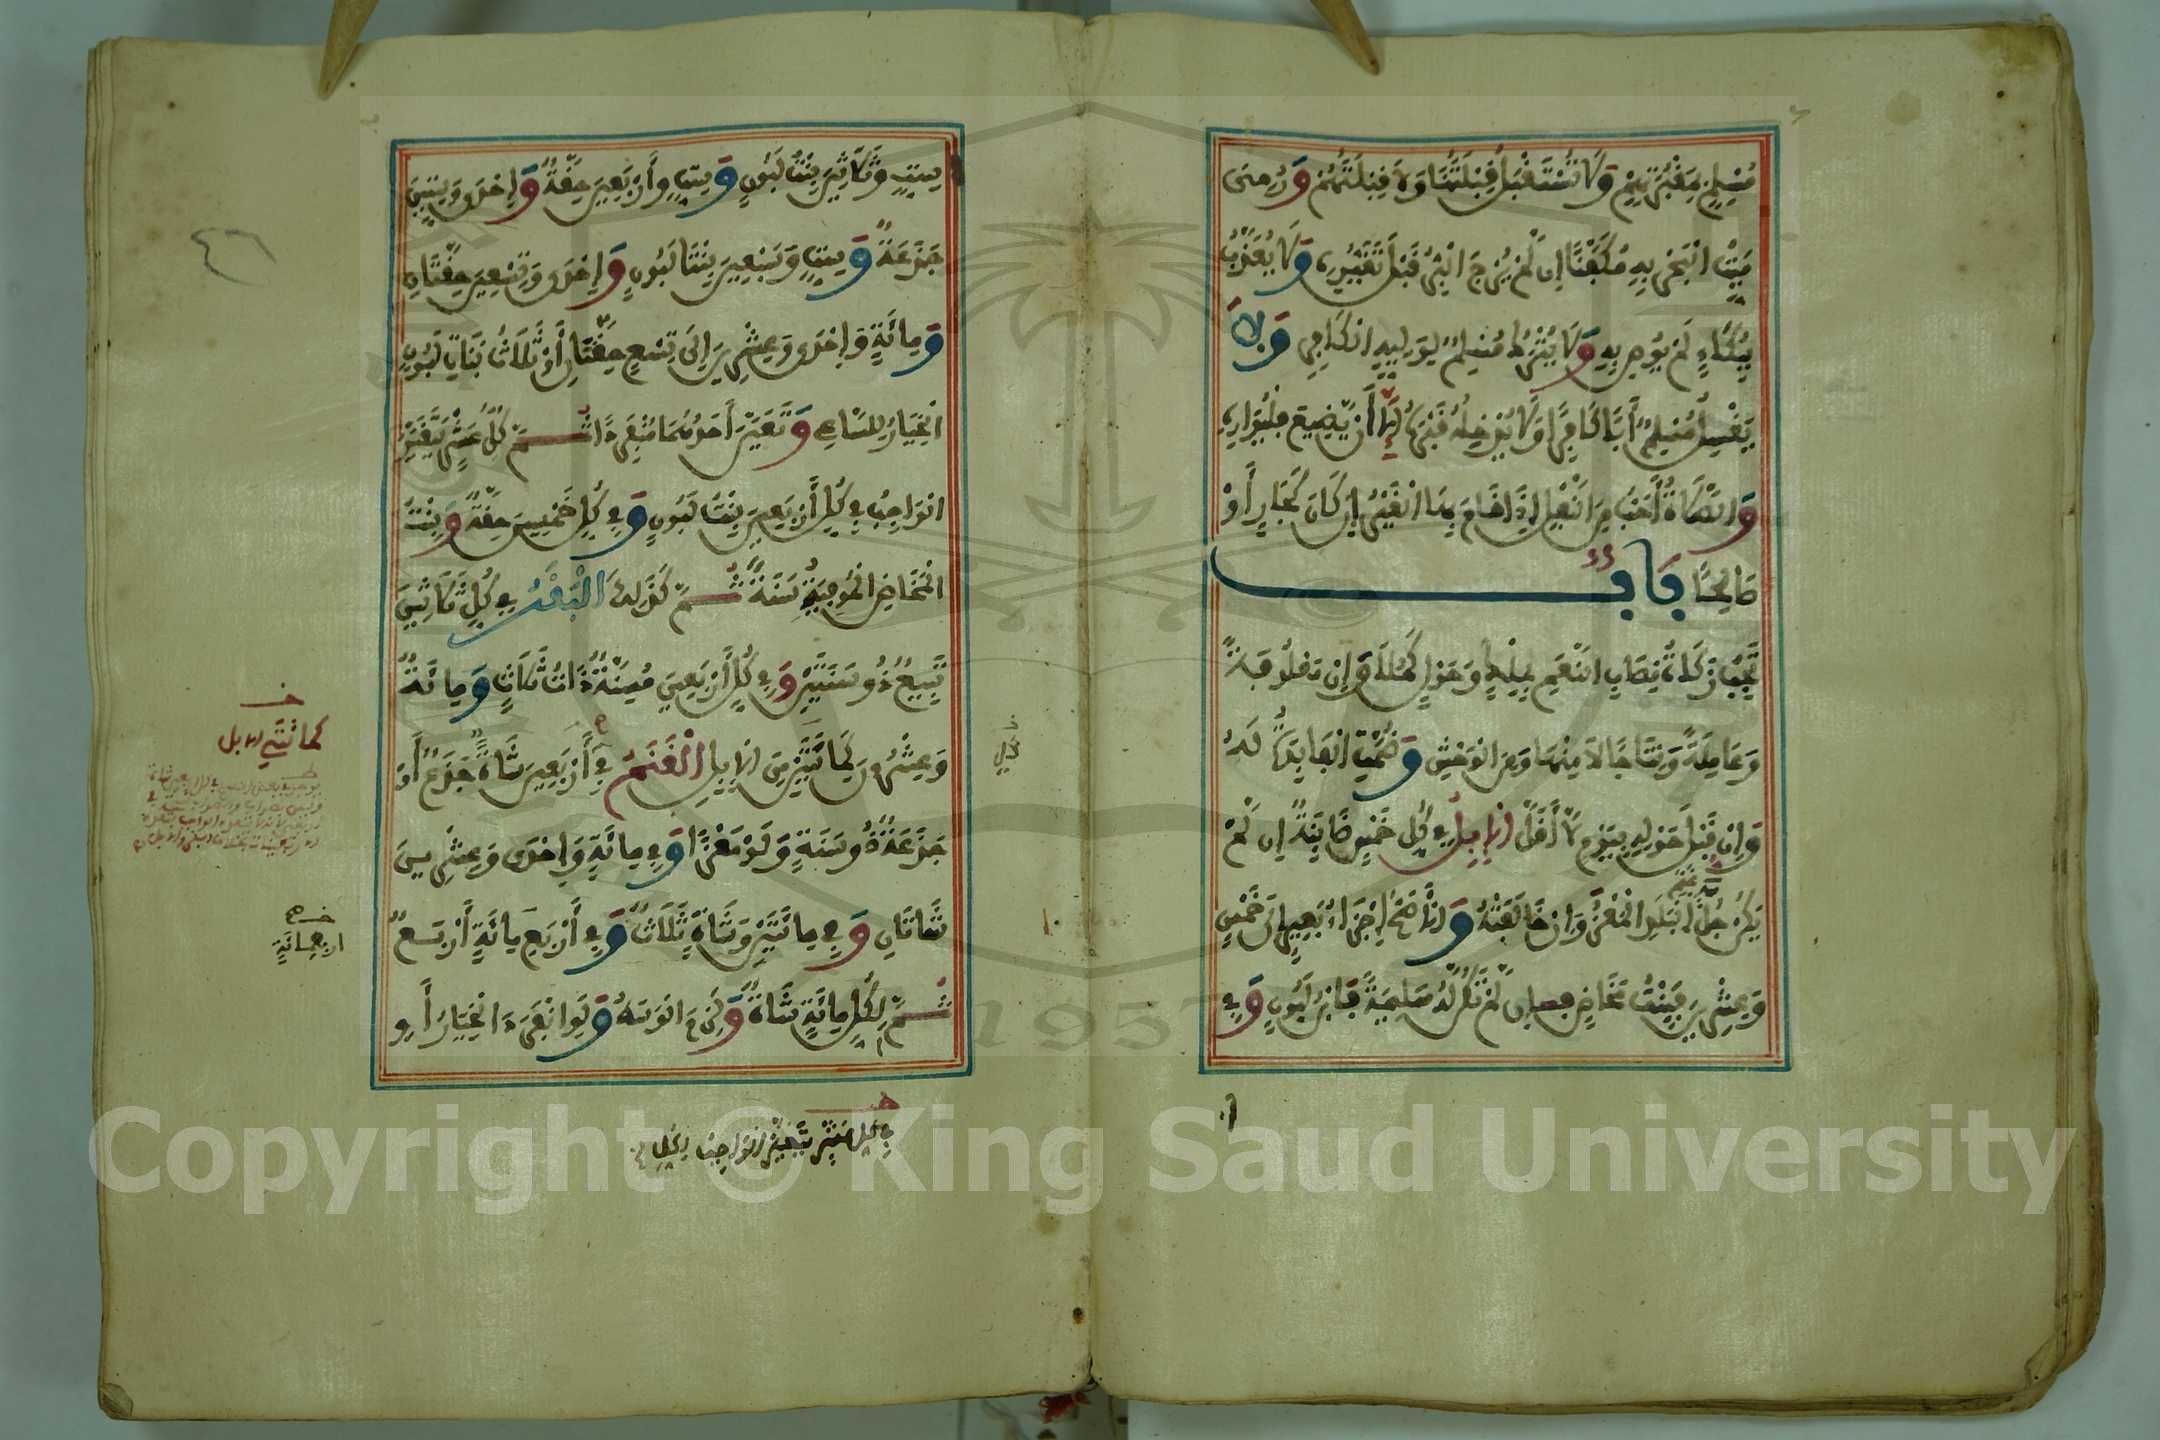 مسلم بمقبرتهم ولا تستقبل قبلتنا ولا قبلتهم ورمي
ميت البحر به مكفنا إن لم يرج البر قبل تغيره ولا يعذب
ببكاء لم يوص به ولا يترك مسلم لوليه الكافر ولا
يغسل مسلم أبا كافرا ولا يدخله قبره إلا أن يضيع فليواره
والصلاة أحب من النفل إذا قام بها الغير إن كان كجار أو
صالحا باب
تجب زكاة نصاب النعم بملك وحول كملا وإن معلوفة
وعاملة ونتاجا لا منها ومن الوحش وضمت الفائدة له
وإن قبل حوله بيوم لا لأقل الإبل في كل خمس ضائنة إن لم
يكن جل غنم البلد المعز وإن خالفته والأصح إجزاء بعير إلى خمس
وعشرين فبنت مخاض فإن لم تكن له سليمة فابن لبون وفي
ست وثلاثين بنت لبون وست وأربعين حقة وإحدى وستين
جذعة وست وسبعين بنتا لبون وإحدى وتسعين حقتان
ومائة وإحدى وعشرين إلى تسع حقتان أو ثلاث بنات لبون
الخيار للساعي وتعين أحدهما منفردا ثم كل عشر يتغير
الواجب في كل أربعين بنت لبون وفي كل خمسين حقة وبنت
المخاض الموفية سنة ثم كذلك البقر في كل ثلاثين
تبيع ذو سنتين وفي كل أربعين مسنة ذات ثلاث ومائة
وعشرون كمائتين من الإبل الغنم في أربعين شاة جذع أو
جذعة ذو سنة ولو معزا وفي مائة وإحدى وعشرين
شاتان وفي مائتين وشاة ثلاث وفي أربع مائة أربع
ثم لكل مائة شاة ولزم الوسط ولو انفرد الخيار أو
كمائتي الإبل
أربعمائة
في كل عشر يتغير الواجب
Copyright © King Saud University
1957